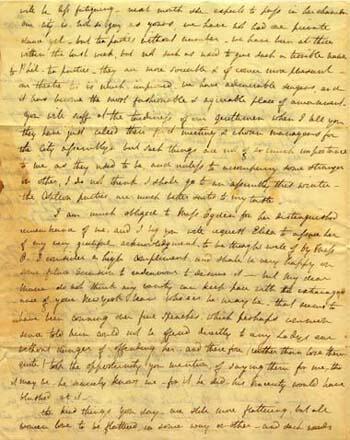 will be left
next month she expects to pass in her
our city is not so gay as yours, we have not had one private
dance yet - but tea parties without number - we have been at three
within the last week, but not such as used to give such a terrible name
to Phil. tea parties - they are more sociable & of course more pleasant -
our theatre too is much improved, we have admirable singers, and
it has become the most fashionable & agreeable place of amusement.
You will laugh at the of our gentlemen when I tell you
they have just called their first meeting & chosen managers for
the City assembly - but such things are not of so much importance
to me as they used to be, and unless to accompany some stranger
or other, I do not think I shall go to an assembly this winter -
the parties are much better suited to my taste.
I am much obliged to Miss Ogden for her distinguished
remembrance of me, and I beg you will request Eliza to assure her
of my very grateful acknowledgment. to be thought well of by Miss
O. I consider a high compliment, and shall be very happy on
some future occasion to endeavour to deserve it - but my dear
Maria do not think my vanity can keep pace with the extravagance
of your New York beau whoever he may be, that seems to
have been coning over fine speeches which perhaps common
sense told him could not be offered directly to any Lady's ear
without danger of offending her, and therefore (rather than lose them
quite) took the opportunity you mention of saying them for me, tho'
it may be he scarcely knew me - for if he did, his sincerity would have
blushed at it -
the kind things you say are still more flattering, but all
women love to be flattered in some way or other - and such words